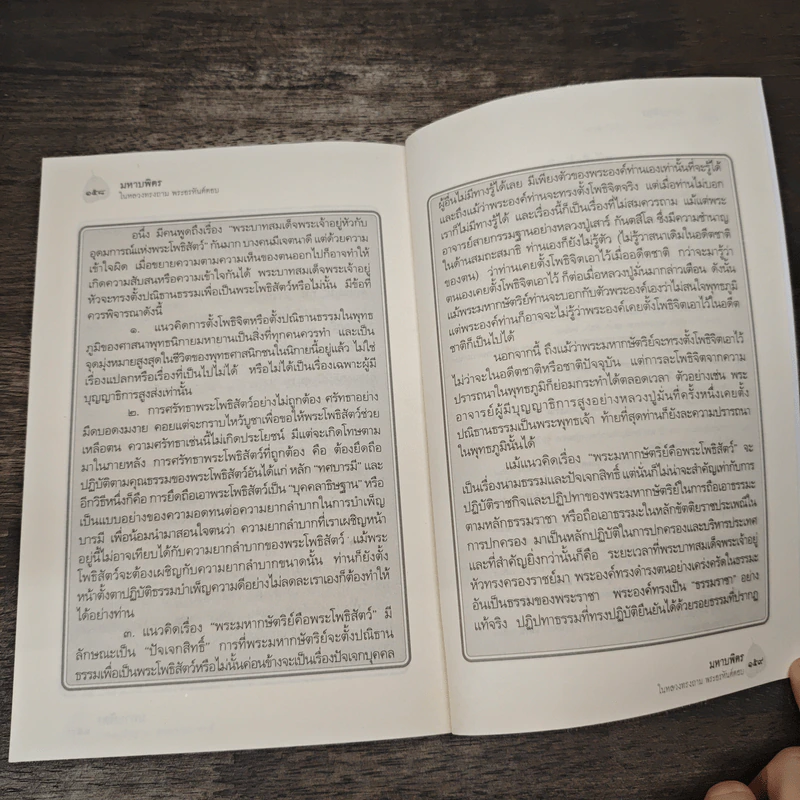 ๑๕๘
มหาบพิตร
ในหลวงทรงถาม พระอรหันต์ตอบ
อนึ่ง มีคนพูดถึงเรื่อง "พระบาทสมเด็จพระเจ้าอยู่หัวกับ
อุดมการณ์แห่งพระโพธิสัตว์" กันมาก บางคนมีเจตนาดี แต่ด้วยความ
เข้าใจผิด เมื่อขยายความตามความเห็นของตนออกไปก็อาจทำให้
เกิดความสับสนหรือความเข้าใจกันได้ พระบาทสมเด็จพระเจ้าอยู่
หัวจะทรงตั้งปณิธานธรรมเพื่อเป็นพระโพธิสัตว์หรือไม่นั้น มีข้อที่
ควรพิจารณาดังนี้
๑. แนวคิดการตั้งโพธิจิตหรือตั้งปณิธานธรรมในพุทธ
ภูมิของศาสนาพุทธนิกายมหายานเป็นสิ่งที่ทุกคนควรทำ และเป็น
จุดมุ่งหมายสูงสุดในชีวิตของพุทธศาสนิกชนในนิกายนี้อยู่แล้ว ไม่ใช่
เรื่องแปลกหรือเรื่องที่เป็นไปไม่ได้ หรือไม่ได้เป็นเรื่องเฉพาะผู้มี
บุญญาธิการสูงส่งเท่านั้น
๒. การศรัทธาพระโพธิสัตว์อย่างไม่ถูกต้อง ศรัทธาอย่าง
มืดบอดงมงาย คอยแต่จะกราบไหว้บูชาเพื่อขอให้พระโพธิสัตว์ช่วย
เหลือตน ความศรัทธาเช่นนี้ไม่เกิดประโยชน์ มีแต่จะเกิดโทษตาม
มาในภายหลัง การศรัทธาพระโพธิสัตว์ที่ถูกต้อง คือ ต้องยึดถือ
ปฏิบัติตามคุณธรรมของพระโพธิสัตว์อันได้แก่ หลัก "ทศบารมี" และ
อีกวิธีหนึ่งก็คือ การยึดถือเอาพระโพธิสัตว์เป็น "บุคคลาธิษฐาน" หรือ
เป็นแบบอย่างของความอดทนต่อความยากลำบากในการบำเพ็ญ
บารมี เพื่อน้อมนำมาสอนใจตนว่า ความยากลำบากที่เราเผชิญหน้า
อยู่นี้ไม่อาจเทียบได้กับความยากลำบากของพระโพธิสัตว์ แม้พระ
โพธิสัตว์จะต้องเผชิญกับความยากลำบากขนาดนั้น ท่านก็ยังตั้ง
หน้าตั้งตาปฏิบัติธรรมบำเพ็ญความดีอย่างไม่ลดละเราเองก็ต้องทำให้
ได้อย่างท่าน
๓. แนวคิดเรื่อง "พระมหากษัตริย์คือพระโพธิสัตว์" มี
ลักษณะเป็น "ปัจเจกสิทธิ์" การที่พระมหากษัตริย์จะตั้งปณิธาน
ธรรมเพื่อเป็นพระโพธิสัตว์หรือไม่นั้นค่อนข้างจะเป็นเรื่องปัจเจกบุคคล
ผู้อื่นไม่มีทางรู้ได้เลย มีเพียงตัวของพระองค์ท่านเองเท่านั้นที่จะรู้ได้
และถึงแม้ว่าพระองค์ท่านจะทรงตั้งโพธิจิตจริง แต่เมื่อท่านไม่บอก
เราก็ไม่มีทางรู้ได้ และเรื่องนี้ก็เป็นเรื่องที่ไม่สมควรถาม แม้แต่พระ
อาจารย์สายกรรมฐานอย่างหลวงปู่เสาร์ กันตสีโล ซึ่งมีความชำนาญ
ในด้านสมถะสมาธิ ท่านเองก็ยังไม่รู้ตัว (ไม่รู้วาสนาเดิมในอดีตชาติ
ของตน) ว่าท่านเคยตั้งโพธิจิตเอาไว้เมื่ออดีตชาติ กว่าจะมารู้ว่า
ตนเองเคยตั้งโพธิจิตเอาไว้ ก็ต่อเมื่อหลวงปู่มั่นมากล่าวเตือน ดังนั้น
แม้พระมหากษัตริย์ท่านจะบอกกับตัวพระองค์เองว่าไม่สนใจพุทธภูมิ
แต่พระองค์ท่านก็อาจจะไม่รู้ว่าพระองค์เคยตั้งโพธิจิตเอาไว้ในอดีต
ชาติก็เป็นไปได้
นอกจากนี้ ถึงแม้ว่าพระมหากษัตริย์จะทรงตั้งโพธิจิตเอาไว้
ไม่ว่าจะในอดีตชาติหรือชาติปัจจุบัน แต่การละโพธิจิตจากความ
ปรารถนาในพุทธภูมิก็ย่อมกระทำได้ตลอดเวลา ตัวอย่างเช่น พระ
อาจารย์ผู้มีบุญญาธิการสูงอย่างหลวงปู่มั่นที่ครั้งหนึ่งเคยตั้ง
ปณิธานธรรมเป็นพระพุทธเจ้า ท้ายที่สุดท่านก็ยังละความปรารถนา
ในพุทธภูมินั้นได้
แม้แนวคิดเรื่อง "พระมหากษัตริย์คือพระโพธิสัตว์" จะ
เป็นเรื่องนามธรรมและปัจเจกสิทธิ์ แต่นั่นก็ไม่น่าจะสำคัญเท่ากับการ
ปฏิบัติราชกิจและปฏิปทาของพระมหากษัตริย์ในการถือเอาธรรมะ
ตามหลักธรรมราชา หรือถือเอาธรรมะในหลักขัตติยราชประเพณีใน
การปกครอง มาเป็นหลักปฏิบัติในการปกครองและบริหารประเทศ
และที่สำคัญยิ่งกว่านั้นก็คือ ระยะเวลาที่พระบาทสมเด็จพระเจ้าอยู่
หัวทรงครองราชย์มา พระองค์ทรงดำรงตนอย่างเคร่งครัดในธรรมะ
อันเป็นธรรมของพระราชา พระองค์ทรงเป็น "ธรรมราชา" อย่าง
แท้จริง ปฏิปทาธรรมที่ทรงปฏิบัติยืนยันได้ด้วยรอยธรรมที่ปรากฏ
มหาบพิตร
ในหลวงทรงถาม พระอรหันต์ตอบ
๑๕๙